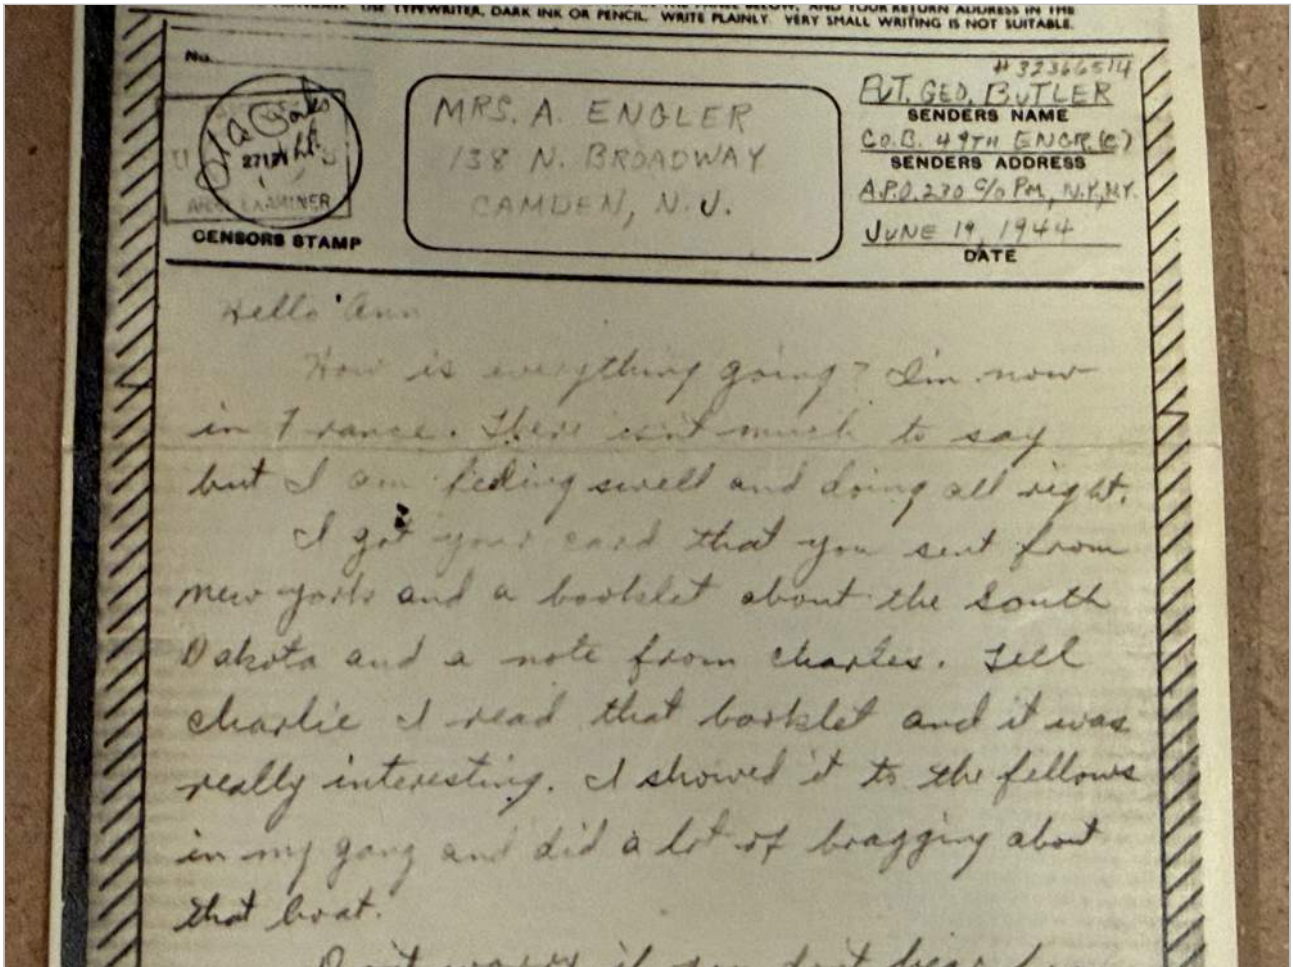 USE TYPEWRITER, DARK INK OR PENCIL. WRITE PLAINLY. VERY SMALL WRITING IS NOT SUITABLE.
BELOW, AND YOUR RETURN ADDRESS IN THE
No.
27121
ARMY EXAMINER
CENSORS STAMP
MRS. A. ENGLER
138 N. BROADWAY
CAMDEN, N.J.
#32366514
PVT. GEO. BUTLER
SENDERS NAME
CO.B. 49TH ENGR.(C)
SENDERS ADDRESS
A.P.O. 230 C/O PM, N.Y., N.Y.
JUNE 19, 1944
DATE
Hello Ann
How is everything going? I'm now
in France. There isn't much to say
but I am feeling swell and doing all right.
I got your card that you sent from
New York and a booklet about the South
Dakota and a note from Charles. Tell
Charlie I read that booklet and it was
really interesting. I showed it to the fellows
in my gang and did a lot of bragging about
that boat.
Don't worry if you don't hear